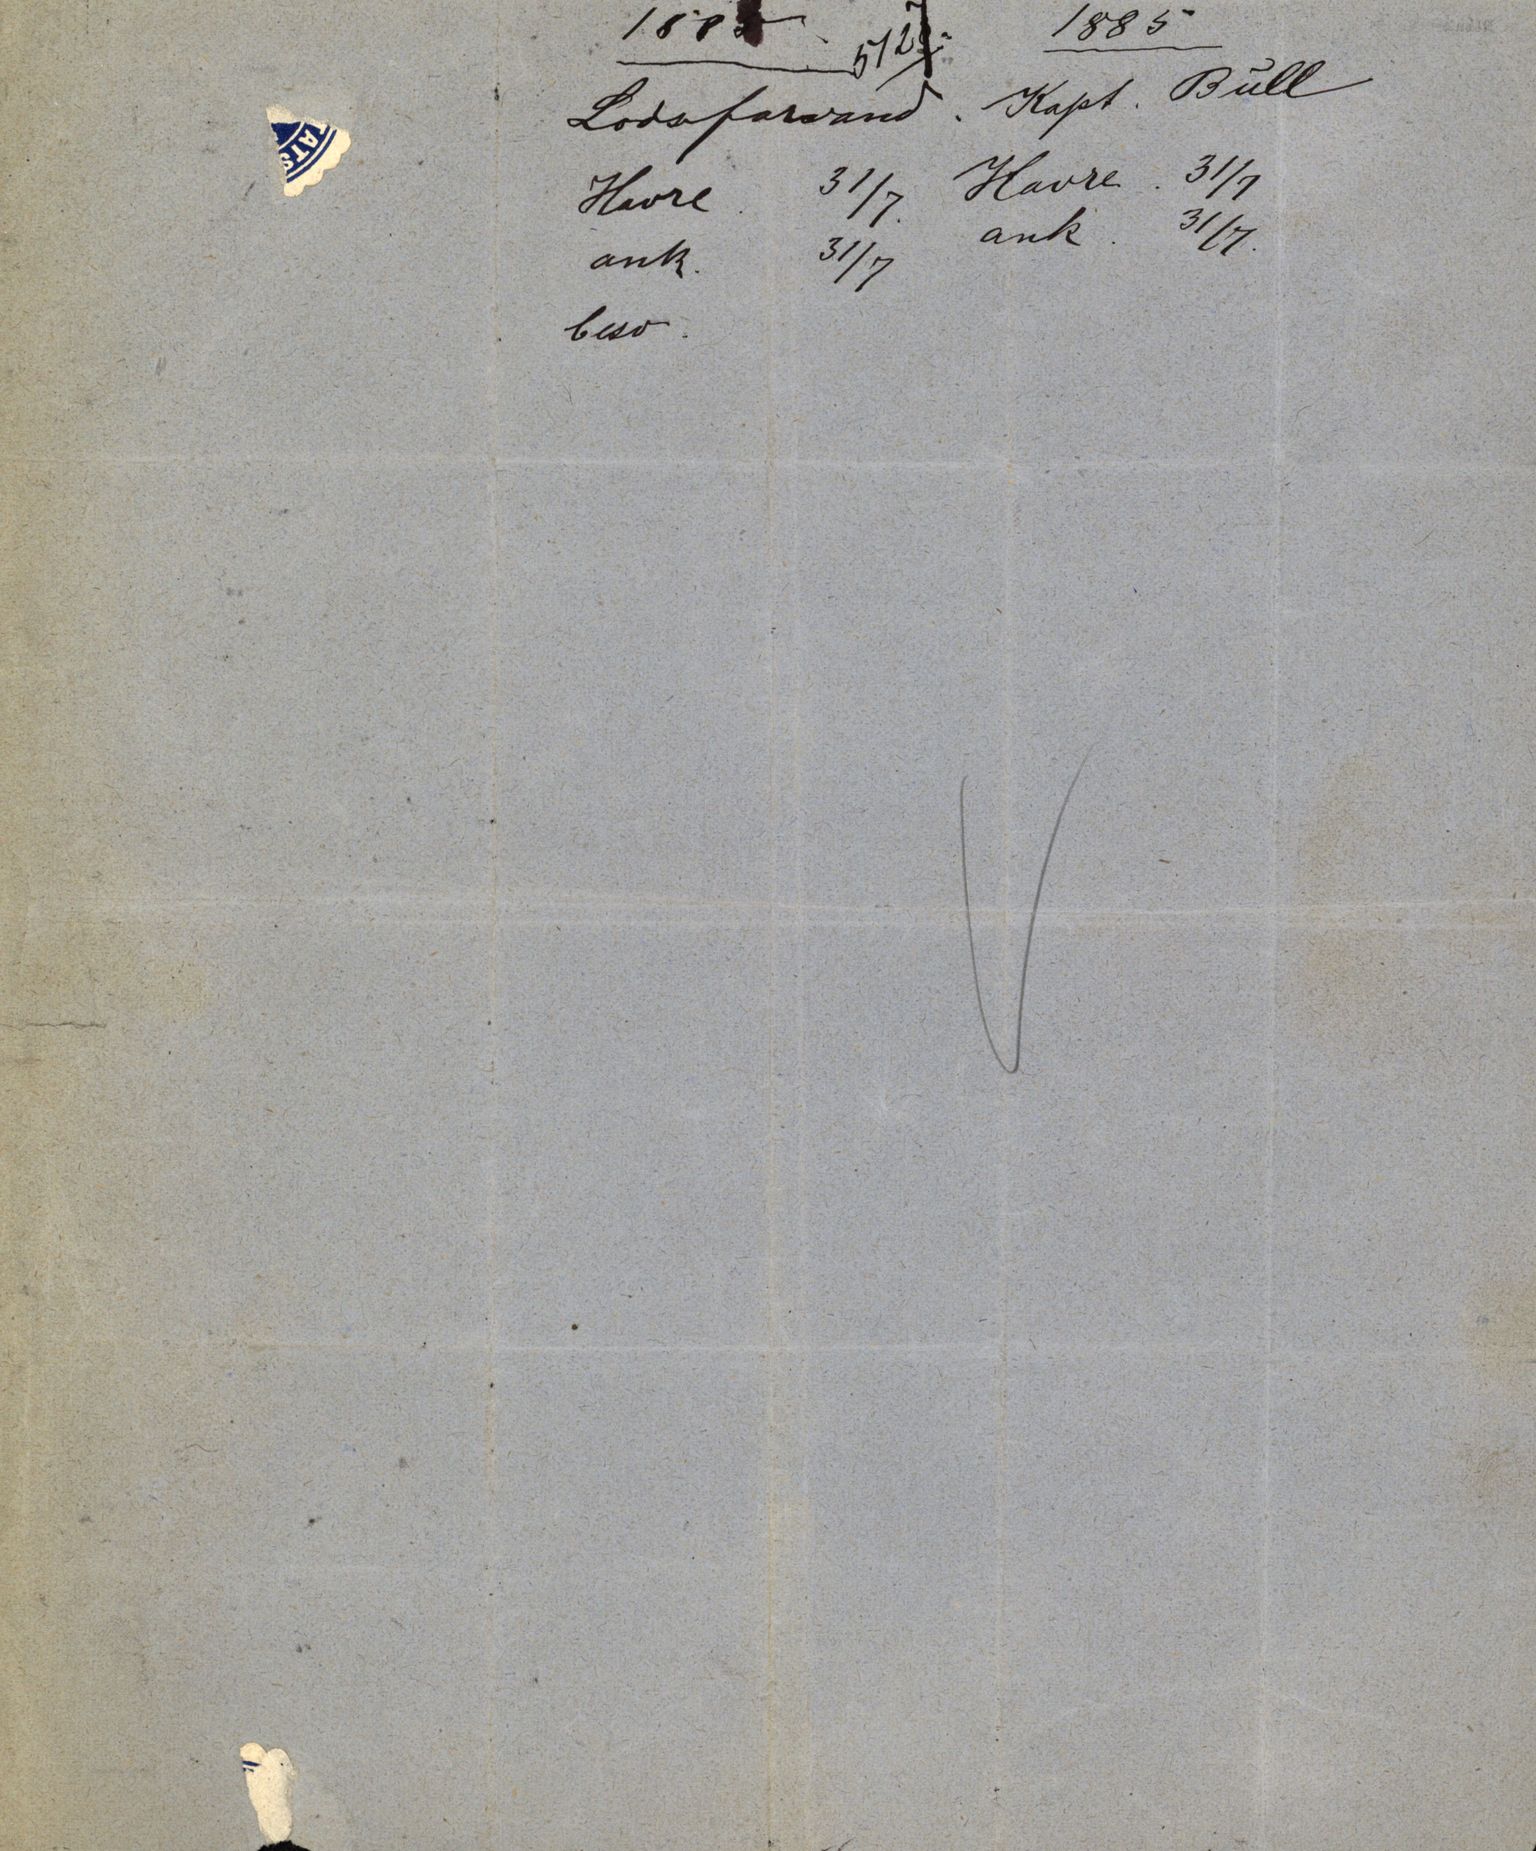 1885
Lodsforvand.
Havre. 31/7.
ank. 31/7
besv.
1885
Kapt. Büll
Havre. 31/7
ank. 31/7.
ATS